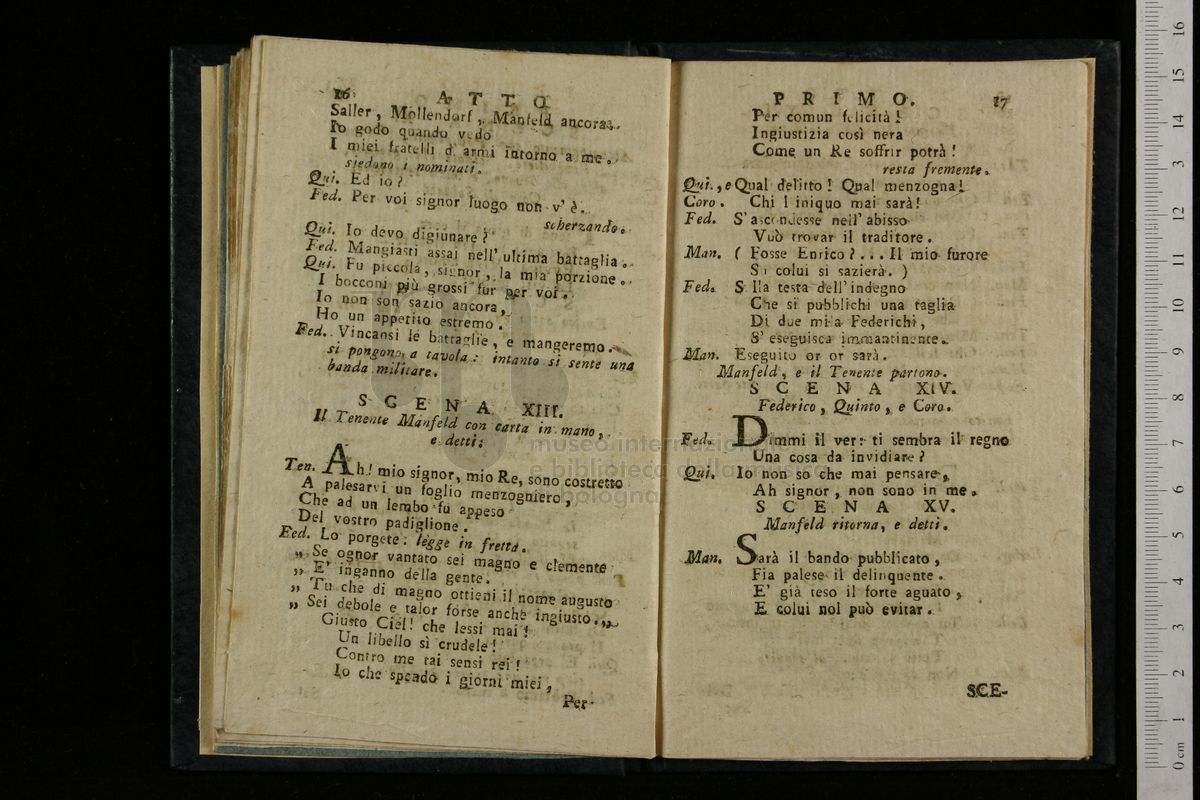 16 ATTO
Saller, Mollendorf, Manfeld ancora.
Io godo quando vedo
I miei fratelli d'armi intorno a me.
siedono i nominati.
Qui. Ed io?
Fed. Per voi signor luogo non v'è.
scherzando.
Qui. Io devo digiunare?
Fed. Mangiasti assai nell'ultima battaglia.
Qui. Fu piccola, signor, la mia porzione.
I bocconi più grossi fur per voi.
Io non son sazio ancora,
Ho un appetito estremo.
Fed. Vincansi le battaglie, e mangeremo.
si pongono a tavola: intanto si sente una
banda militare.
SCENA XIII.
Il Tenente Manfeld con carta in mano,
e detti;
Ten. Ah! mio signor, mio Re, sono costretto
A palesarvi un foglio menzogniero,
Che ad un lembo fu appeso
Del vostro padiglione.
Eed. Lo porgete: legge in fretta.
„ Se ognor vantato sei magno e clemente
„ E' inganno della gente.
„ Tu che di magno ottieni il nome augusto
„ Sei debole e talor forse anchè ingiusto.„
Giusto Ciel! che lessi mai!
Un libello sì crudele!
Contro me tai sensi rei!
Io che spendo i giorni miei,
Per
PRIMO. 17
Per comun felicità!
Ingiustizia così nera
Come un Re soffrir potrà!
resta fremente.
Qui., e Qual delitto! Qual menzogna!
Coro. Chi l iniquo mai sarà!
Fed. S'ascondesse nell'abisso
Vuò trovar il traditore.
Man. ( Fosse Enrico?... Il mio furore
Si colui si sazierà. )
Fed. S lla testa dell'indegno
Che si pubblichi una taglia
Di due mila Federichi,
S'eseguisca immantinente.
Man. Eseguito or or sarà.
Manfeld, e il Tenente partono.
SCENA XIV.
Federico, Quinto, e Coro.
Fed. Dimmi il ver: ti sembra il regno
Una cosa da invidiare?
Qui. Io non so che mai pensare,
Ah signor, non sono in me.
SCENA XV.
Manfeld ritorna, e detti.
Man. Sarà il bando pubblicato,
Fia palese il delinquente.
E' già teso il forte aguato,
E colui nol può evitar.
SCE-
museo internazionale
e biblioteca della musica
bologna
0 cm 1 2 3 4 5 6 7 8 9 10 11 12 13 14 15 16